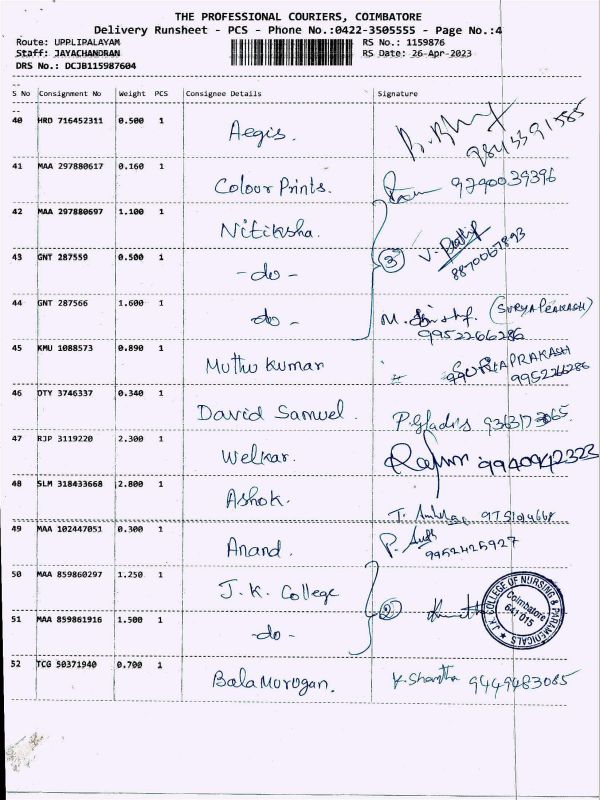 THE PROFESSIONAL COURIERS, COIMBATORE
Delivery Runsheet - PCS - Phone No.:0422-3505555 - Page No.:4
Route: UPPLIPALAYAM RS No.: 1159876
Staff: JAYACHANDRAN RS Date: 26-Apr-2023
DRS No.: DCJB115987604
S No Consignment No Weight PCS Consignee Details Signature
40 HRD 716452311 0.500 1 Aegis.
41 MAA 297880617 0.160 1 Colour Prints. 9290039396
42 MAA 297880697 1.100 1 Nitiksha.
43 GNT 287559 0.500 1 -do- 3 V. 8870067893
44 GNT 287566 1.600 1 -do- M. (SURYA PRAKASH)
9952266286
45 KMU 1088573 0.890 1 Muthu Kumar SURYAPRAKASH
9952266286
46 OTY 3746337 0.340 1 David Samuel. P. Gladis
47 RJP 3119220 2.300 1 Welkar.
48 SLM 318433668 2.800 1 Ashok. T.
49 MAA 102447051 0.300 1 Anand. P.
9952425927
50 MAA 859860297 1.250 1 J.K. College
51 MAA 859861916 1.500 1 -do- 2
J.K. COLLEGE OF NURSING & PARAMEDICALS
Coimbatore
641 015
52 TCG 50371940 0.700 1 Bala Murugan. K. Shantha 9449483085